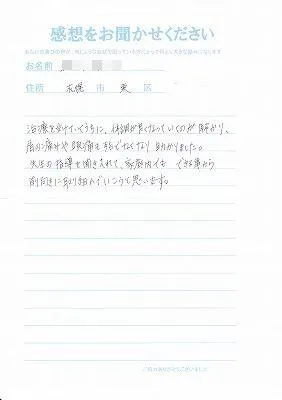 感想をお聞かせください
お名前
住所 札幌 市 東 区
治療を受けていくうちに、体調が良くなっていくのが解かり、
肩の痛みや頭痛もほぼなくなり助かりました。
先生の指導を聞き入れて、家庭内でも できる事から
前向きに取り組んでいこうと思います。
ご協力ありがとうございました